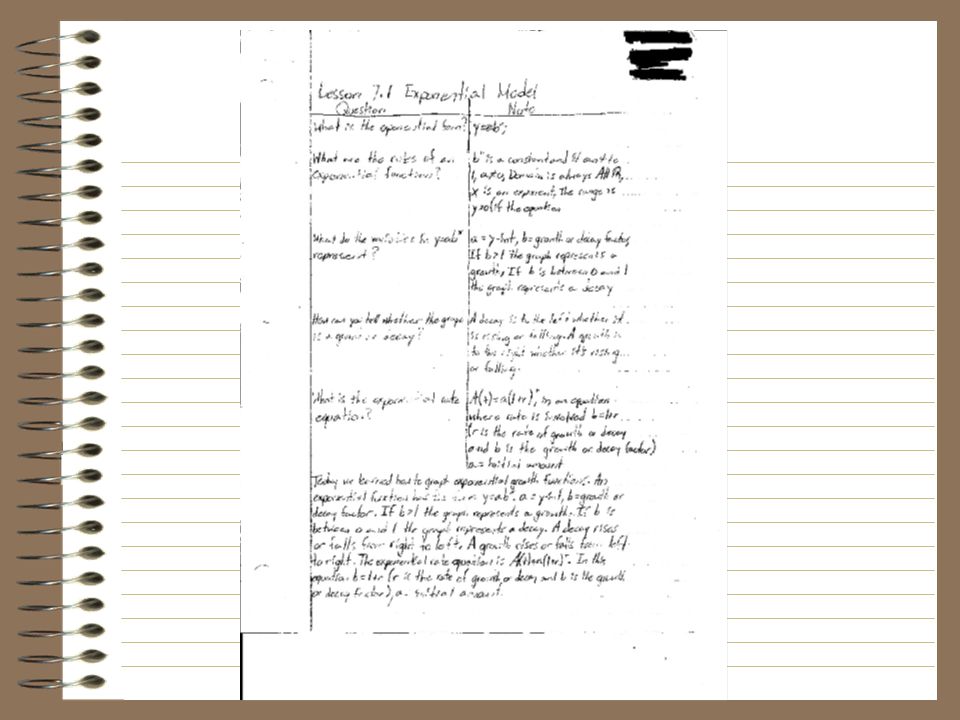 Lesson 7.1 Exponential Model
Question
Note
What is the exponential form?
y=ab^x;
What are the rules of an
exponential function?
b is a constant and it can't be
1, a≠0, Domain is always All R,
x is an exponent, The range is
y>0 if the equation
What do the variables in y=ab^x
represent?
a = y-int, b= growth or decay factor,
If b>1 the graph represents a
growth, If b is between 0 and 1
the graph represents a decay
How can you tell whether the graph
is a growth or decay?
A decay is to the left whether it
is rising or falling. A growth is
to the right whether it's rising
or falling.
What is the exponential rate
equation?
A(t)=a(1+r)^x, in an equation
where a rate is involved b=1+r
(r is the rate of growth or decay
and b is the growth or decay factor)
a= initial amount
Today we learned how to graph exponential growth functions. An
exponential function has the form y=ab^x. a=y-int, b=growth or
decay factor. If b>1 the graph represents a growth. If b is
between 0 and 1 the graph represents a decay. A decay rises
or falls from right to left. A growth rises or falls from left
to right. The exponential rate equation is A(t)=a(1+r)^x. In this
equation b=1+r (r is the rate of growth or decay and b is the growth
or decay factor), a= initial amount.